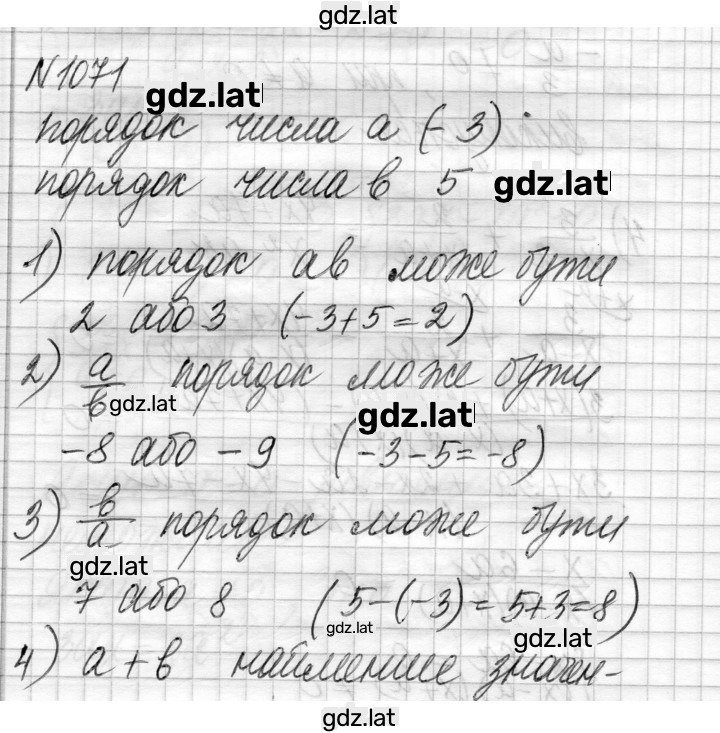 gdz.lat
N 1071
gdz.lat
порядок числа a (-3)
порядок числа b 5 gdz.lat
1) порядок ab може бути
2 або 3 (-3+5=2)
2) a/b порядок може бути
gdz.lat
gdz.lat
-8 або -9 (-3-5=-8)
3) b/a порядок може бути
gdz.lat
7 або 8 (5-(-3)=5+3=8)
gdz.lat
gdz.lat
4) a+b найменше значен-
gdz.lat